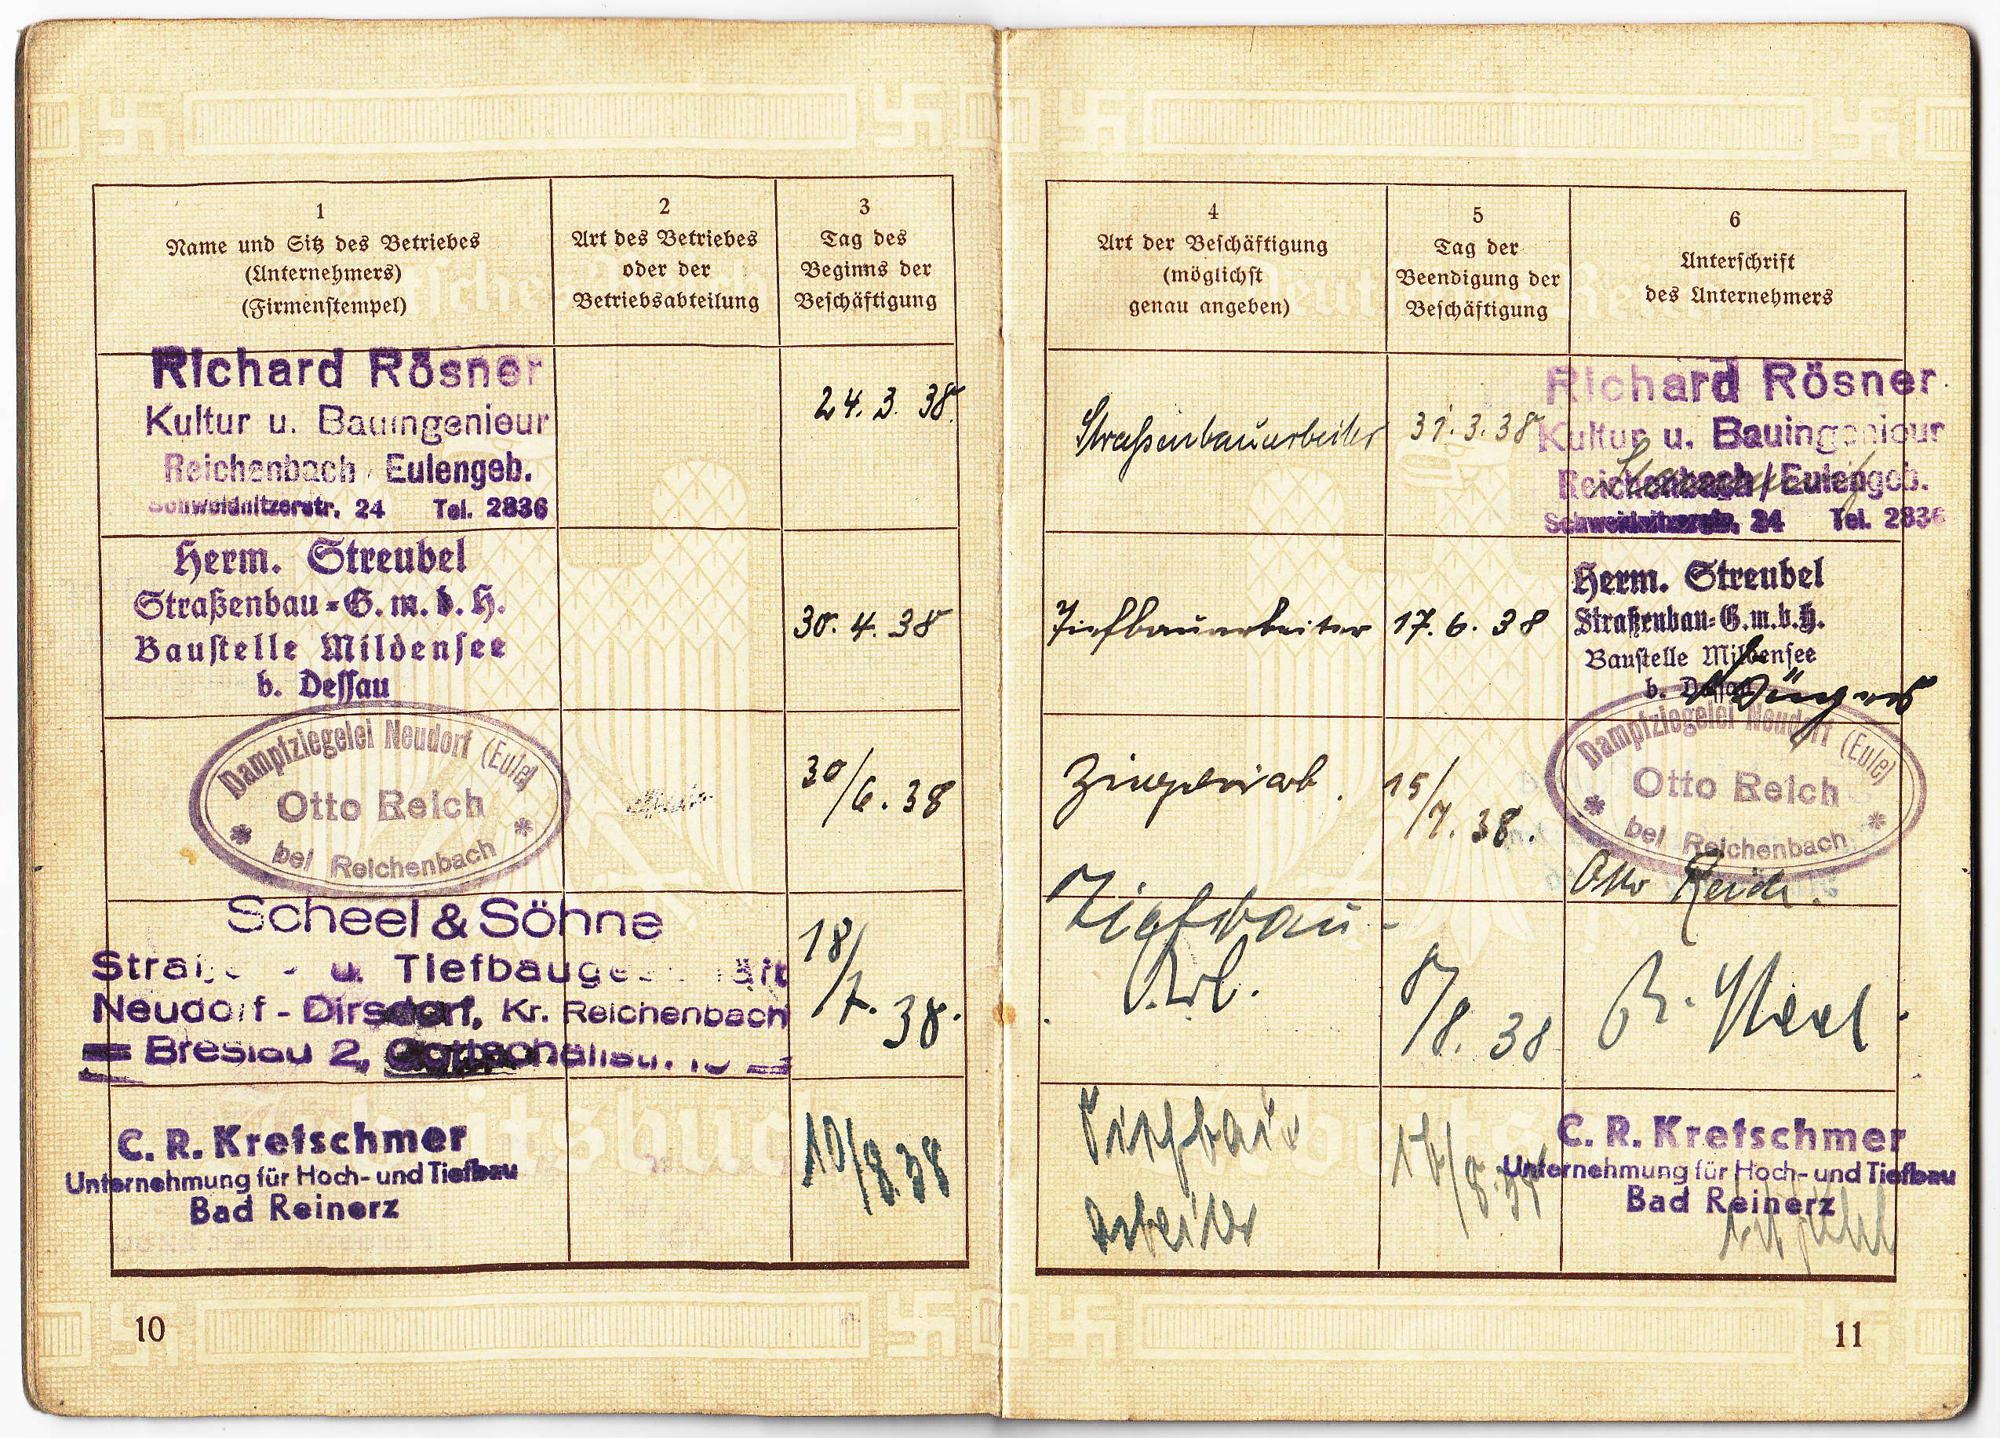 1
Name und Sitz des Betriebes
(Unternehmers)
(Firmenstempel)
2
Art des Betriebes
oder der
Betriebsabteilung
3
Tag des
Beginns der
Beschäftigung
Richard Rösner
Kultur u. Bauingenieur
Reichenbach Eulengeb.
Schweidnitzerstr. 24 Tel. 2836
24.3.38.
Herm. Streubel
Straßenbau-G.m.b.H.
Baustelle Mildensee
b. Dessau
30.4.38
Dampfziegelei Neudorf (Eule)
Otto Reich
bei Reichenbach
30/6.38
Scheel & Söhne
u. Tiefbau
Neudorf-Dirsdorf, Kr. Reichenbach
Breslau 2,
18/7.38.
C. R. Kretschmer
Unternehmung für Hoch- und Tiefbau
Bad Reinerz
/8.38
10
4
Art der Beschäftigung
(möglichst
genau angeben)
5
Tag der
Beendigung der
Beschäftigung
6
Unterschrift
des Unternehmers
Straßenbauarbeiter
31.3.38
Richard Rösner
Kultur u. Bauingenieur
Reichenbach/Eulengeb.
Schweidnitzerstr. 24 Tel. 2836
Tiefbauarbeiter
17.6.38
Herm. Streubel
Straßenbau-G.m.b.H.
Baustelle Mildensee
b. Dessau
15/7.38.
Dampfziegelei Neudorf (Eule)
Otto Reich
bei Reichenbach
Otto Reich.
Tiefbau-
Arb.
8/8.38
C. R. Kretschmer
Unternehmung für Hoch- und Tiefbau
Bad Reinerz
Tiefbau
arbeiter
11